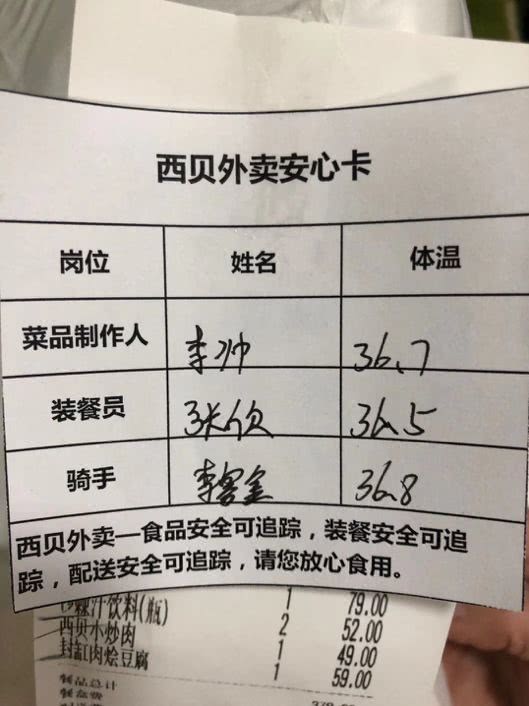 西贝外卖安心卡
岗位 姓名 体温
菜品制作人 李帅 36.7
装餐员 36.5
骑手 36.8
西贝外卖—食品安全可追踪，装餐安全可追
踪，配送安全可追踪，请您放心食用。
汁饮料(瓶) 1 79.00
西贝小炒肉 2 52.00
封缸肉烩豆腐 1 49.00
1 59.00
餐品总计
餐盒费